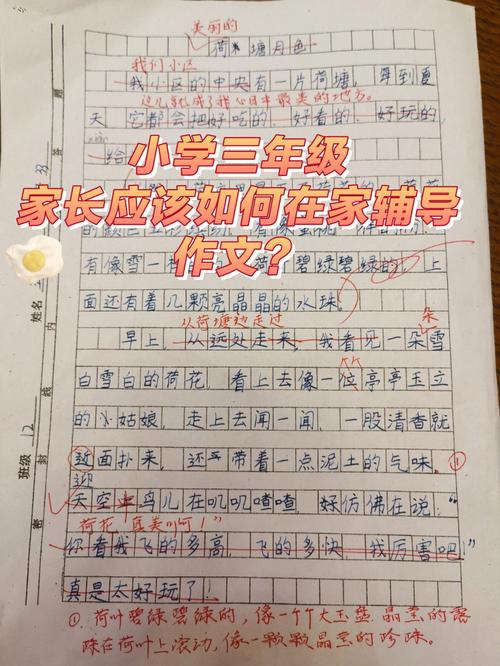 美丽的
荷塘月色
我们小区
我小区的中央有一片荷塘,每到夏
这儿就成了我心目中最美的地方。
天它都会把好吃的、好看的、好玩的
给
小学三年级
家长应该如何在家辅导
作文?
有像雪一样的 荷叶碧绿碧绿的,上
面还有着几颗亮晶晶的水珠。
从荷塘边走过
朵
早上,从远处走来,我看见一朵雪
白雪白的荷花,看上去像一位亭亭玉立
的小姑娘,走上去闻一闻,一股清香就
近面扑来,还带着一点泥土的气味。①
迎
天空中鸟儿在叽叽喳喳,好仿佛在说:“
荷花,真美啊!”
你看我飞的多高,飞的多快,我厉害吧!
真是太好玩了!
①荷叶碧绿碧绿的,像一个个大玉盘,晶莹的露
珠在荷叶上滚动,像一颗颗晶莹的珍珠。
姓名
班级 12
密 封 线 内
答 题